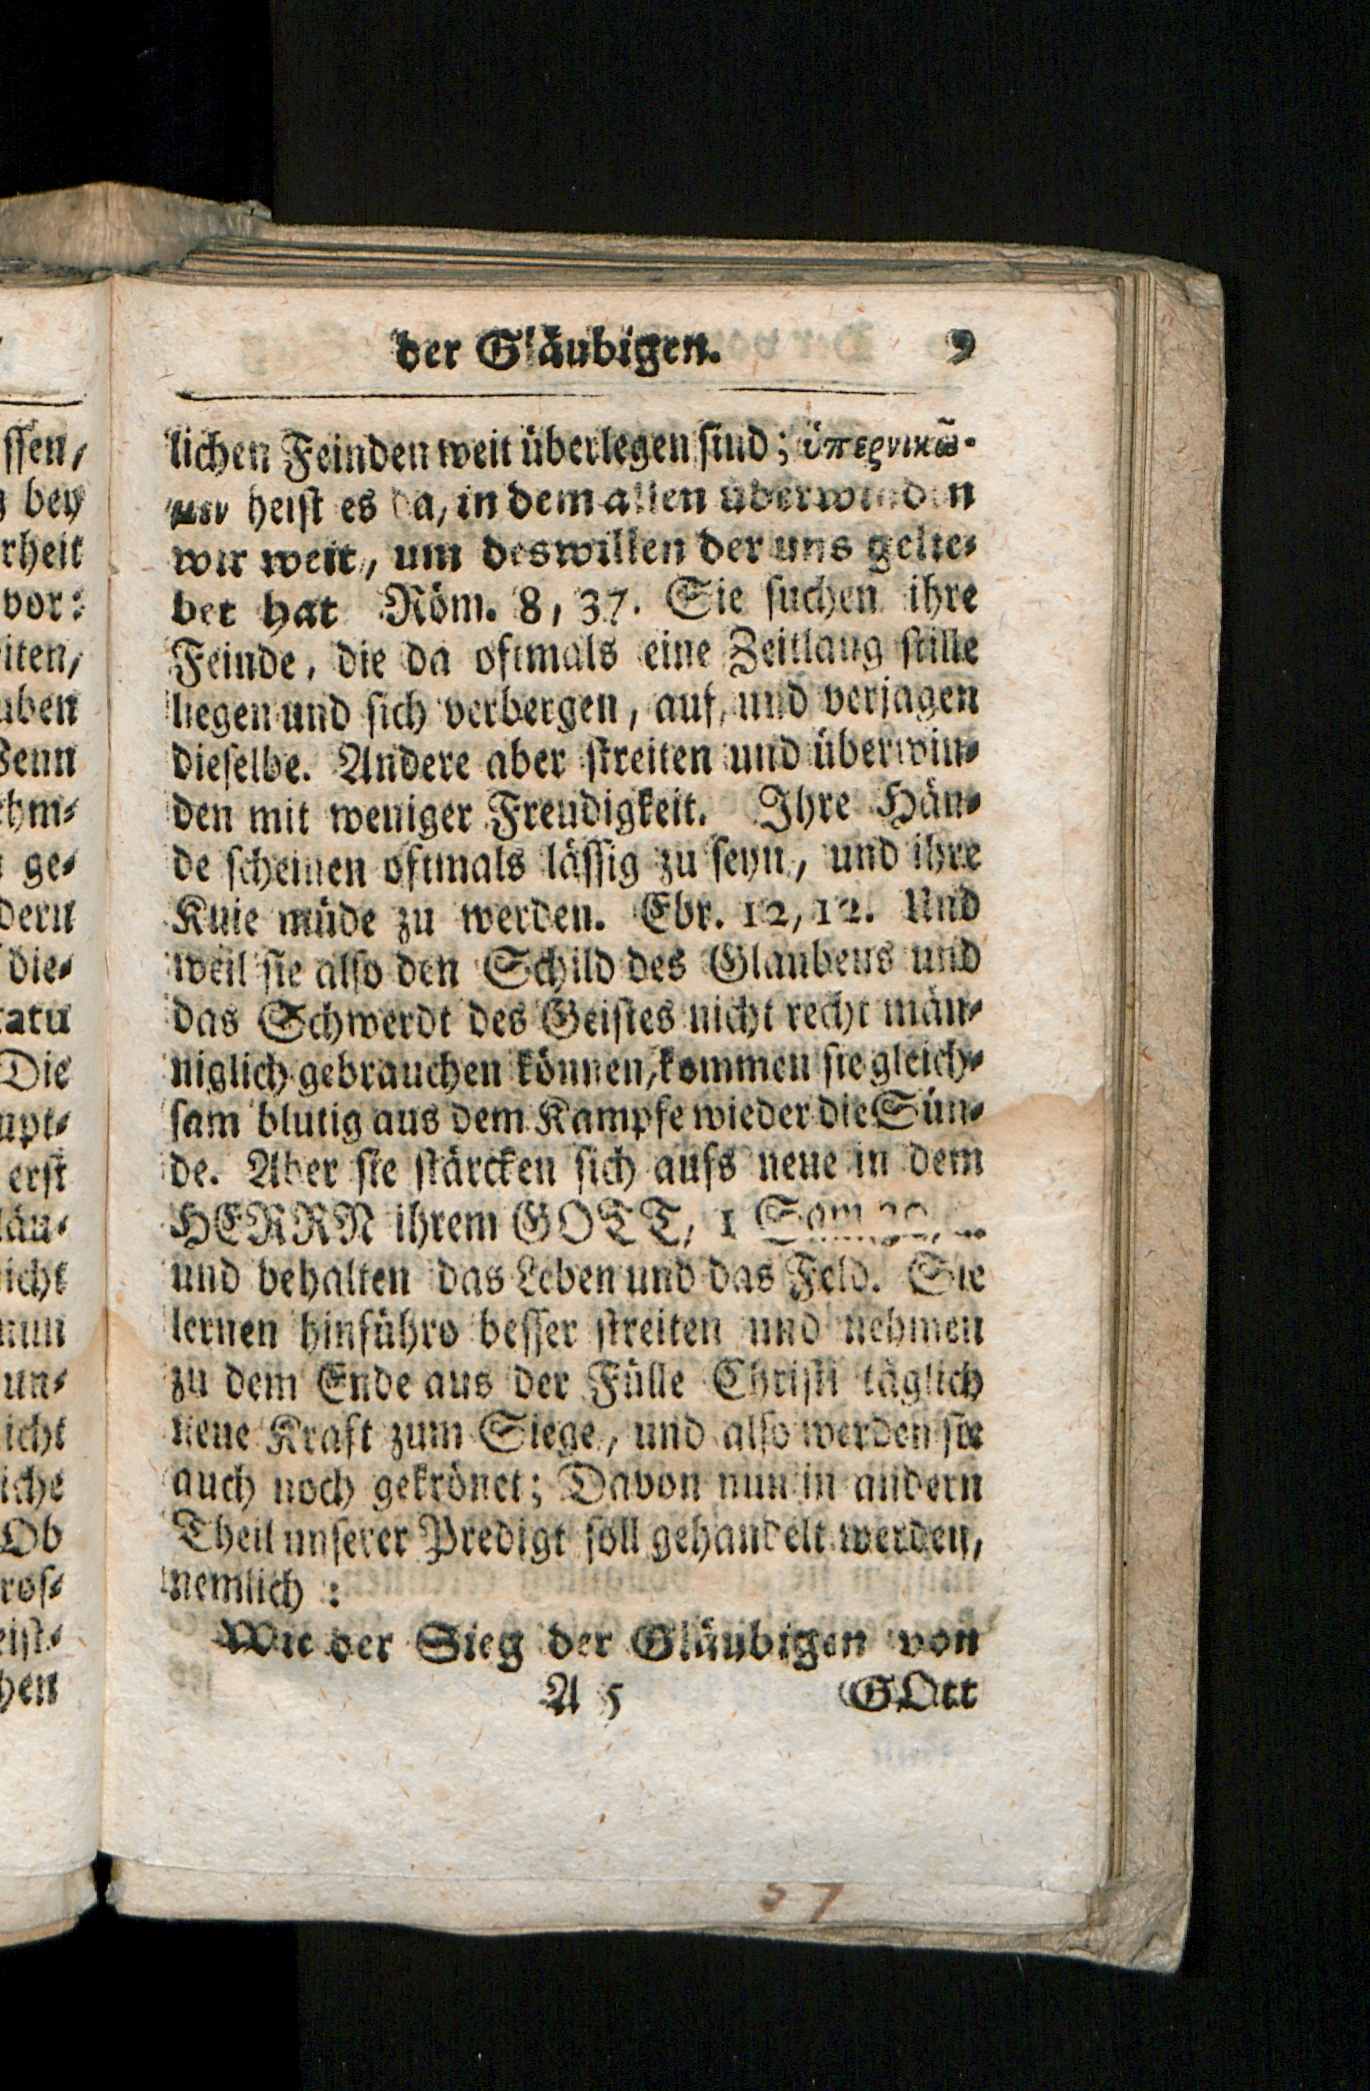 der Gläubigen. 9
lichen Feinden weit überlegen sind; ὑπερνικῶ-
μεν heist es da, in dem allen überwinden
wir weit, um deswillen der uns gelie-
bet hat Röm. 8, 37. Sie suchen ihre
Feinde, die da oftmals eine Zeitlang stille
liegen und sich verbergen, auf, und verjagen
dieselbe. Andere aber streiten und überwin-
den mit weniger Freudigkeit. Ihre Hän-
de scheinen oftmals lässig zu seyn, und ihre
Knie müde zu werden. Ebr. 12, 12. Und
weil sie also den Schild des Glaubens und
das Schwerdt des Geistes nicht recht män-
niglich gebrauchen können, kommen sie gleich-
sam blutig aus dem Kampfe wieder die Sün-
de. Aber sie stärcken sich aufs neue in dem
HERRN ihrem GOTT, 1 Sam.
und behalten das Leben und das Feld. Sie
lernen hinführo besser streiten und nehmen
zu dem Ende aus der Fülle Christi täglich
neue Kraft zum Siege, und also werden sie
auch noch gekrönet; Davon nun in andern
Theil unserer Predigt soll gehandelt werden,
nemlich:
Wie der Sieg der Gläubigen von
A 5 GOtt
57
ssen,
bey
rheit
vor:
iten,
uben
Wenn
ehm-
ge-
dern
die-
tatu
Die
upt-
erst
läu-
icht
nun
un-
icht
iche
Ob
ros-
eist-
hen